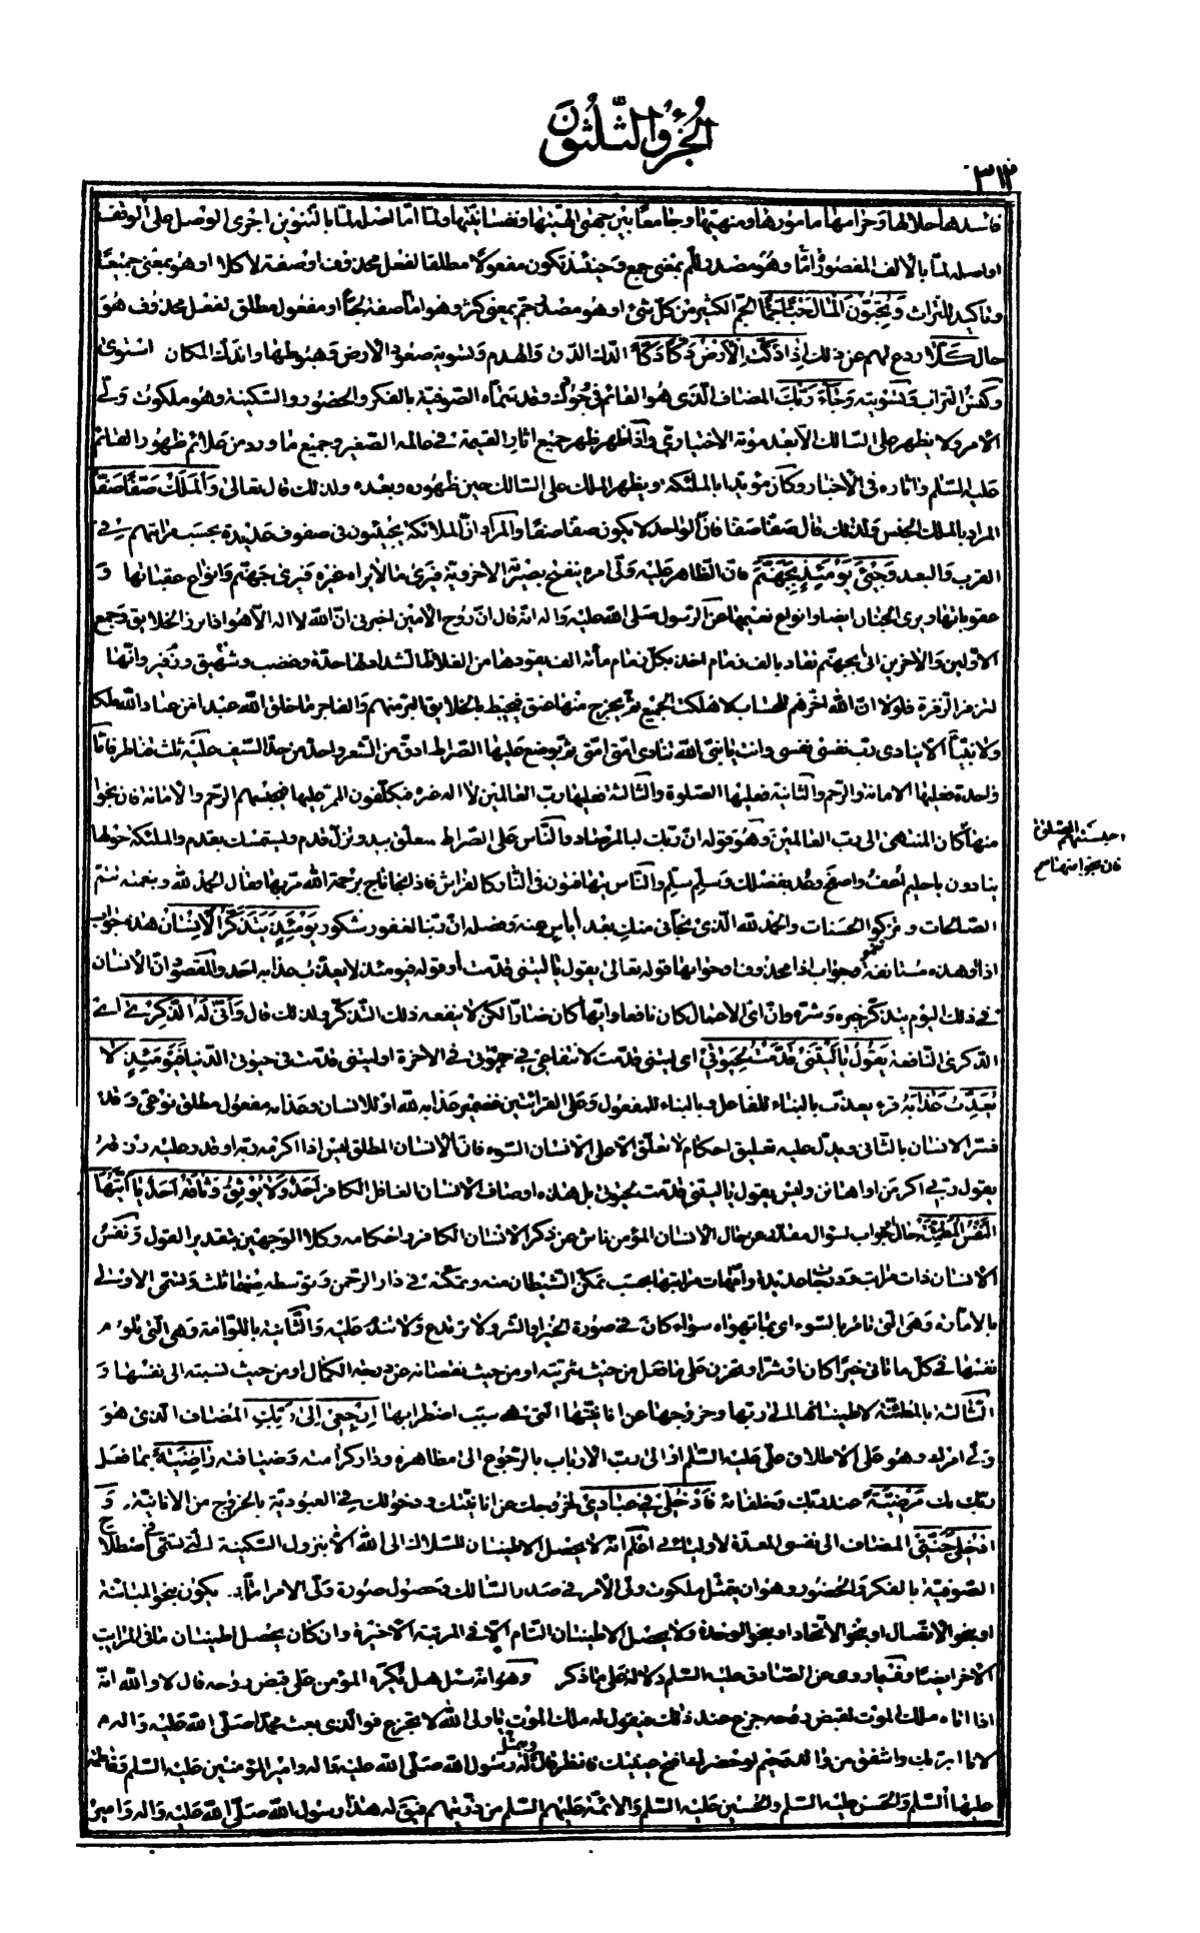 الجزؤ الثلثون
٣١٢
فاسدها حلالها وحرامها مأمورها ومنهيها وجامعا بين جهتى الهيتها ونفسانيتها ولمّا امّا اصله لمّا بالتنوين اجرى الوصل على الوقف
او اصله لمّا بالالف المقصورة لمّا وهو مصدر لمّ بمعنى جمع وحينئذ يكون مفعولا مطلقا لفعل محذوف او صفة لاكلا او هو بمعنى جميعًا
وتاكيد للتراث وَتُحِبُّونَ الْمَالَ حُبًّا جَمًّا الجمّ الكثير من كل شئ او هو مصدر جمّ بمعنى كثر وهو امّا صفة لحبّا او مفعول مطلق لفعل محذوف هو
حال كَلَّا ردع لهم عن ذلك إِذَا دُكَّتِ الْأَرْضُ دَكًّا دَكًّا الدّك الدّق والهدم وتسوية صعود الارض وهبوطها واندك المكان استوى
وكبس التراب وتسويته وَجَاءَ رَبُّكَ المضاف الّذى هو القائم فى وقد سمّاه الصّوفيّة بالفكر والحضور والسّكينة وهو ملكوت ولىّ
الامر ولا يظهر على السّالك الّا بعد موته الاختيارىّ واذا ظهر ظهر جميع اثار القيمة فى عالمه الصّغير وجميع ما ورد من علائم ظهور القائم
عليه السّلم واثاره فى الأخبار وكان مؤيّدا بالملئكة ويظهر الملك على السّالك حين ظهوره وبعده ولذلك قال تعالى وَالْمَلَكُ صَفًّا صَفًّا
المراد بالملك الجنس ولذلك قال صفّا صفّا فانّ الواحد لا يكون صفّا صفّا والمراد انّ الملائكة يجيئون فى صفوف عديدة بحسب مراتبهم فى
القرب والبعد وَجِىءَ يَوْمَئِذٍ بِجَهَنَّمَ فانّ الظّاهر عليه ولىّ امره ينفتح بصيرته الاخرويّة فيرى ما لا يراه غيره فيرى جهنّم وانواع عقباتها و
عقوباتها ويرى الجنان ايضا وانواع نعيمها عن الرسول صلى الله عليه واله انّه قال انّ روح الامين اخبرنى انّ الله لا اله الّا هو اذا برز الخلايق وجمع
الاوّلين والاخرين اتى بجهنّم تقاد بالف زمام اخذ بكلّ زمام مأة الف يقودها من الغلاظ الشداد لها هدّة وغضب وشهيق وزفير وانّها
لتزفر الزّفرة فلولا انّ الله اخّرهم للحساب لاهلكت الجميع ثمّ يخرج منها عنق فيحيط بالخلايق البرّ منهم والفاجر ما خلق الله عبدا من عباد الله ملكا
ولا نبيّا الّا ينادى ربّ نفسى نفسى وانت يا نبىّ الله تنادى امّتى امّتى ثمّ يوضع عليها الصّراط ادقّ من الشّعر واحدّ من حدّ السّيف عليه ثلث قناطر فامّا
واحدة فعليها الامانة والرّحم والثّانية فعليها الصّلوة والثالثة فعليها ربّ العالمين لا اله غيره فيكلّفون الممرّ عليها فيحبسهم الرّحم والامانة فان نجوا
منها كان المنتهى الى ربّ العالمين وهو قوله انّ ربّك لبالمرصاد والنّاس على الصّراط فمتعلّق بيد وتزلّ قدم وليستمسك بقدم والملئكة حولها
احبستهم الصلوة
فان نجوا منها صح
ينادون يا حليم اعف واصفح وعد بفضلك وسلّم سلّم والنّاس يتهافتون فى النّار كالفراش فاذا نجا ناج برحمة الله مرّ بها فقال الحمد لله وبنعمته تتمّ
الصّالحات وتزكو الحسنات والحمد لله الّذى نجّانى منك بعد اياس بمنّه وفضله انّ ربّنا لغفور شكور يَوْمَئِذٍ يَتَذَكَّرُ الْإِنْسَانُ هذه جواب
اذا او هذه مستانفة وجواب اذا محذوف او جوابها قوله تعالى يقول يا ليتنى قدّمت او قوله فيومئذ لا يعذّب عذابه احد والمقصود انّ الانسان
فى ذلك اليوم يتذكّر خيره وشرّه وانّ اىّ الاعمال كان نافعا وايّها كان ضارّا لكن لا ينفعه ذلك التّذكّر ولذلك قال وَأَنَّى لَهُ الذِّكْرَىٰ اى
الذكرى النّافعة يَقُولُ يَا لَيْتَنِى قَدَّمْتُ لِحَيَوتِى اى ليتنى قدّمت لانتفاعى فى حيوتى فى الاخرة او ليتنى قدّمت فى حيوتى الدّنيا فَيَوْمَئِذٍ لَا
يُعَذِّبُ عَذَابَهُ قرء يعذّب بالبناء للفاعل وبالبناء للمفعول وعلى القرائتين فضمير عذابه لله او للانسان وعذابه مفعول مطلق نوعىّ وقد
فسّر الانسان بالثّانى ويدلّ عليه تعليق احكام لا تعلّق الّا على الانسان السّوء فانّ الانسان المطلق ليس اذا اكرمه ربّه او قدر عليه رزقه
يقول ربّى اكرمن او اهانن وليس يقول يا ليتنى قدّمت لحيوتى بل هذه اوصاف الانسان الغافل الكافر أَحَدٌ وَلَا يُوثِقُ وَثَاقَهُ أَحَدٌ يَا أَيَّتُهَا
النَّفْسُ الْمُطْمَئِنَّةُ حال او جواب لسؤال مقدّر عن حال الانسان المؤمن ناش عن ذكر الانسان الكافر واحكامه وكلا الوجهين بتقدير القول ونفس
الانسان ذات مراتب ودرجات عديدة وامّهات مراتبها بحسب تمكّن الشّيطان منه وتمكّنه فى دار الرّحمن وتوسّطه بينهما ثلث وتسمّى الاولى
بالامّارة وهى الّتى تامر بالسّوء اى بما تهواه سواء كان فى صورة الخير او الشّر ولا ترتدع ولا تندم عليه والثّانية باللّوامة وهى الّتى تلوم
نفسها فى كلّ ما تاتى خيرا كان او شرّا وتحزن على ما فعل من حيث شرّيته او من حيث نقصانه عن درجة الكمال او من حيث نسبته الى نفسها و
الثّالثة بالمطمئنّة لاطمينانها الى ربّها وخروجها عن انانيّتها الّتى هى سبب اضطرابها ارْجِعِى إِلَىٰ رَبِّكِ المضاف الّذى هو
ولىّ امرك وهو على الاطلاق علىّ عليه السّلم او الى ربّ الارباب بالرّجوع الى مظاهره ودار كرامته وضيافته رَاضِيَةً بما فعل
ربّك بك مَرْضِيَّةً عند ربّك وخلفائه فَادْخُلِى فِى عِبَادِى لخروجك عن انانيّتك ودخولك فى العبوديّة بالخروج من الانانيّة وَ
ادْخُلِى جَنَّتِى المضاف الى نفسى المعدّة لاوليائى اعلم انّه لا يحصل الاطمينان للسّلاك الى الله الّا بنزول السّكينة الّتى تسمّى فى اصطلاح
الصّوفيّة بالفكر والحضور وهو ان يتمثّل ملكوت ولىّ الأمر فى صدر السّالك وحصول صورة ولىّ الامر امّا يكون بنحو المباينة
او بنحو الاتّصال او بنحو الاتّحاد او بنحو الوحدة ولا يحصل الاطمينان التّام الّا فى المرتبة الاخيرة وان كان يحصل اطمينان ما فى المراتب
الاخر ايضا وفيما روى عن الصّادق عليه السّلم دلالة على ما ذكر وهو انّه سئل هل يكره المؤمن على قبض روحه قال لا والله انّه
اذا اتاه ملك الموت لقبض روحه جزع عند ذلك فيقول له ملك الموت يا ولىّ الله لا تجزع فوالّذى بعث محمّدا صلّى الله عليه واله
لانا ابرّ بك واشفق من والد رحيم لو حضرك افتح عينيك فانظر قال ويمثّل له رسول الله صلّى الله عليه واله وامير المؤمنين عليه السّلم وفاطمة
عليها السّلم والحسن عليه السّلم والحسين عليه السّلم والائمّة عليهم السّلم من ذرّيّتهم فيقال له هذا رسول الله صلّى الله عليه واله وامير